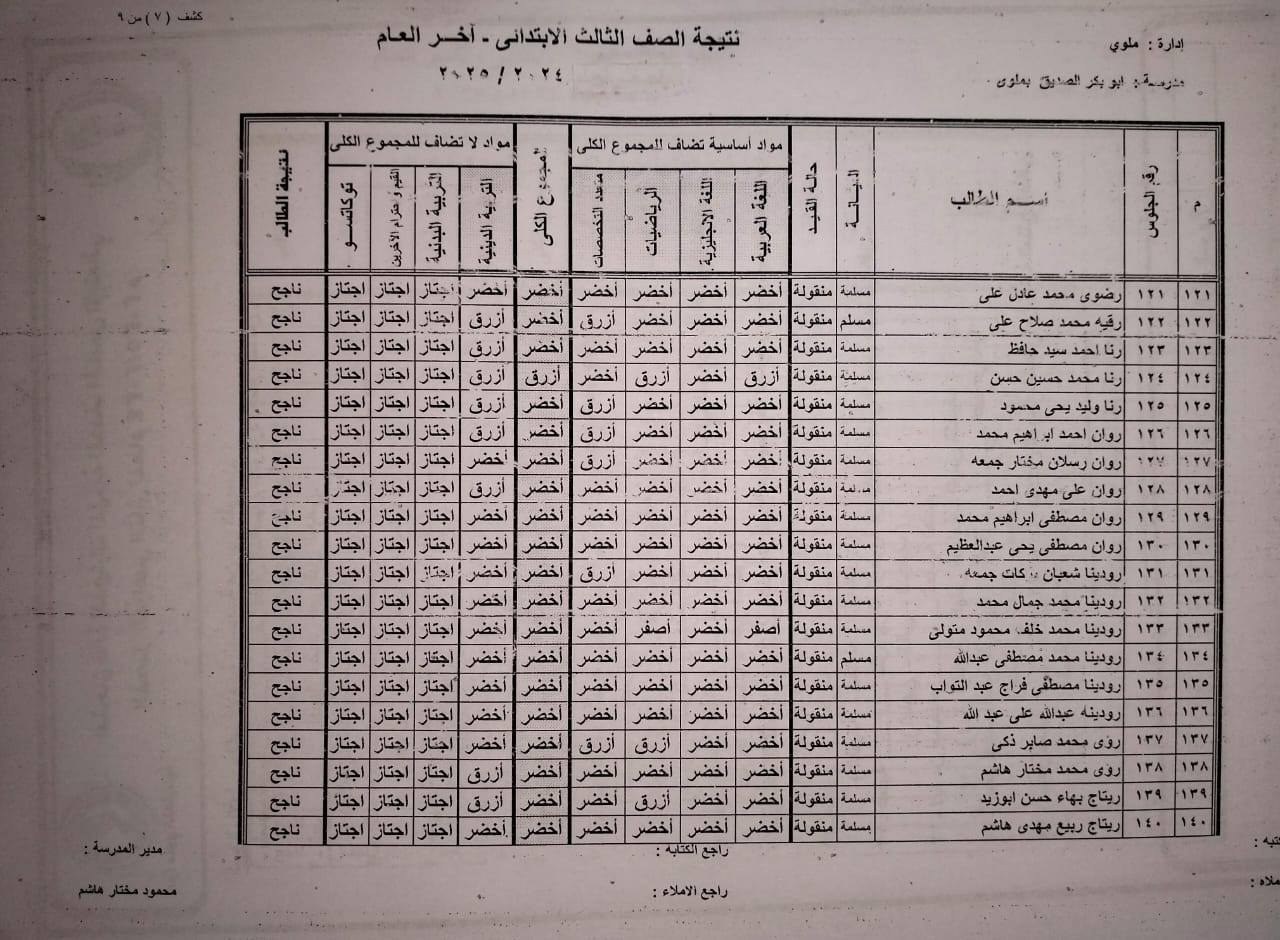 كشف ( ٧ ) من ٩
إدارة : ملوي
نتيجة الصف الثالث الابتدائى - آخر العام
مدرسة : ابو بكر الصديق بملوى
٢٠٢٤ / ٢٠٢٥
م رقم الجلوس اسم الطالب الديانة حالة القيد مواد أساسية تضاف للمجموع الكلى المجموع الكلى مواد لا تضاف للمجموع الكلى نتيجة الطالب
اللغة العربية اللغة الانجليزية الرياضيات متعدد التخصصات التربية الدينية التربية البدنية القيم و احترام الآخرين توكاتسو
١٢١ ١٢١ رضوى محمد عادل على مسلمة منقولة أخضر أخضر أخضر أخضر أخضر أخضر اجتاز اجتاز اجتاز ناجح
١٢٢ ١٢٢ رقيه محمد صلاح على مسلم منقولة أخضر أخضر أخضر أزرق أخضر أزرق اجتاز اجتاز اجتاز ناجح
١٢٣ ١٢٣ رنا احمد سيد حافظ مسلمة منقولة أخضر أخضر أخضر أخضر أخضر أزرق اجتاز اجتاز اجتاز ناجح
١٢٤ ١٢٤ رنا محمد حسين حسن مسلمة منقولة أزرق أخضر أزرق أخضر أزرق أزرق اجتاز اجتاز اجتاز ناجح
١٢٥ ١٢٥ رنا وليد يحى محمود مسلمة منقولة أخضر أخضر أخضر أزرق أخضر أزرق اجتاز اجتاز اجتاز ناجح
١٢٦ ١٢٦ روان احمد ابراهيم محمد مسلمة منقولة أخضر أخضر أخضر أزرق أخضر أزرق اجتاز اجتاز اجتاز ناجح
١٢٧ ١٢٧ روان رسلان مختار جمعه مسلمة منقولة أخضر أخضر أخضر أزرق أخضر أخضر اجتاز اجتاز اجتاز ناجح
١٢٨ ١٢٨ روان على مهدى احمد مسلمة منقولة أخضر أخضر أخضر أخضر أخضر أزرق اجتاز اجتاز اجتاز ناجح
١٢٩ ١٢٩ روان مصطفى ابراهيم محمد مسلمة منقولة أخضر أخضر أخضر أخضر أخضر أخضر اجتاز اجتاز اجتاز ناجح
١٣٠ ١٣٠ روان مصطفى يحى عبدالعظيم مسلمة منقولة أخضر أخضر أخضر أخضر أخضر أخضر اجتاز اجتاز اجتاز ناجح
١٣١ ١٣١ رودينا شعبان جمعه مسلمة منقولة أخضر أخضر أخضر أزرق أخضر أخضر اجتاز اجتاز اجتاز ناجح
١٣٢ ١٣٢ رودينا محمد جمال محمد مسلمة منقولة أخضر أخضر أخضر أخضر أخضر أخضر اجتاز اجتاز اجتاز ناجح
١٣٣ ١٣٣ رودينا محمد خلف محمود متولى مسلمة منقولة أصفر أخضر أصفر أخضر أخضر أخضر اجتاز اجتاز اجتاز ناجح
١٣٤ ١٣٤ رودينا محمد مصطفى عبدالله مسلم منقولة أخضر أخضر أخضر أخضر أخضر أخضر اجتاز اجتاز اجتاز ناجح
١٣٥ ١٣٥ رودينا مصطفى فراج عبد التواب مسلمة منقولة أخضر أخضر أخضر أخضر أخضر أخضر اجتاز اجتاز اجتاز ناجح
١٣٦ ١٣٦ رودينه عبدالله على عبد الله مسلمة منقولة أخضر أخضر أخضر أخضر أخضر أخضر اجتاز اجتاز اجتاز ناجح
١٣٧ ١٣٧ رؤى محمد صابر ذكى مسلمة منقولة أخضر أخضر أزرق أزرق أخضر أخضر اجتاز اجتاز اجتاز ناجح
١٣٨ ١٣٨ رؤى محمد مختار هاشم مسلمة منقولة أخضر أخضر أخضر أخضر أخضر أزرق اجتاز اجتاز اجتاز ناجح
١٣٩ ١٣٩ ريتاج بهاء حسن ابوزيد مسلمة منقولة أخضر أخضر أزرق أخضر أخضر أزرق اجتاز اجتاز اجتاز ناجح
١٤٠ ١٤٠ ريتاج ربيع مهدى هاشم مسلمة منقولة أخضر أخضر أخضر أخضر أخضر أخضر اجتاز اجتاز اجتاز ناجح
راجع الكتابه : مدير المدرسة :
راجع الاملاء : محمود مختار هاشم